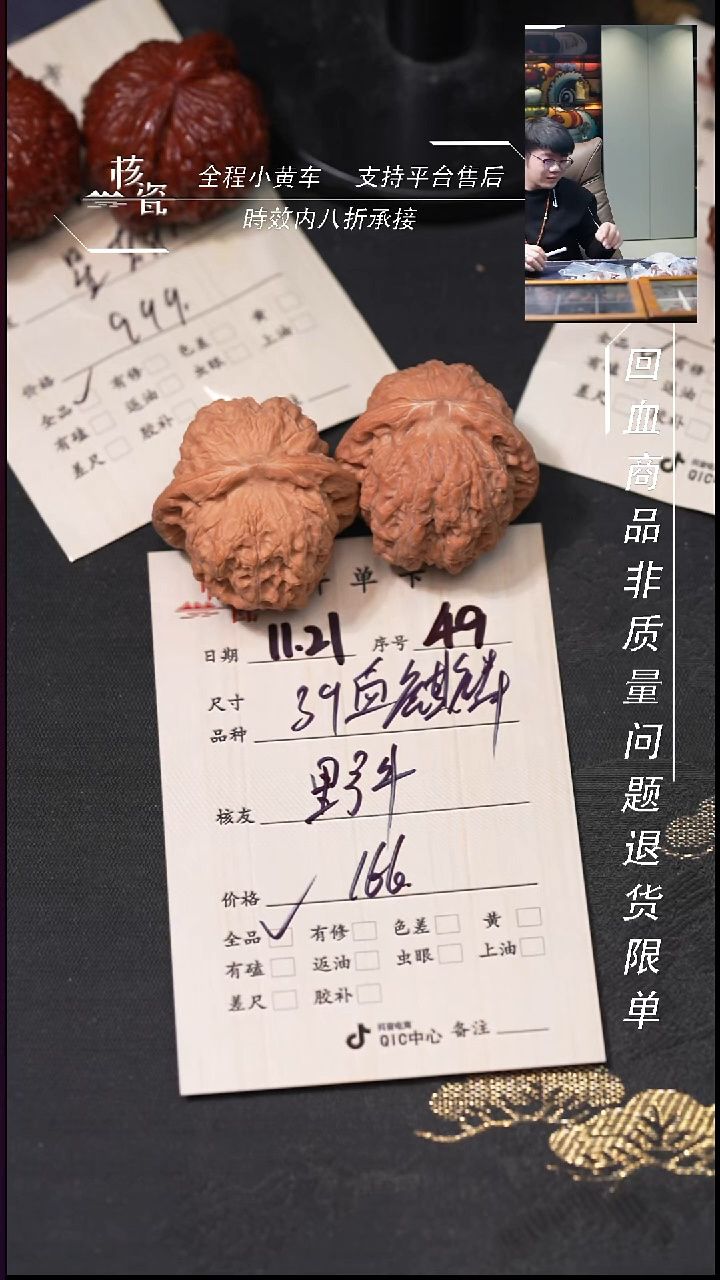 核瓷
全程小黄车 支持平台售后
時效内八折承接
回血商品非质量问题退货限单
星
999.
价格
全品 有修 色差 黄
有磕 返油 虫眼 上油
差尺 胶补
单卡
日期 11.21 序号 49
尺寸
品种 39血麒麟
核友 野牛
价格 166.
全品 ✓ 有修 色差 黄
有磕 返油 虫眼 上油
差尺 胶补
抖音电商
QIC中心 备注
QIC